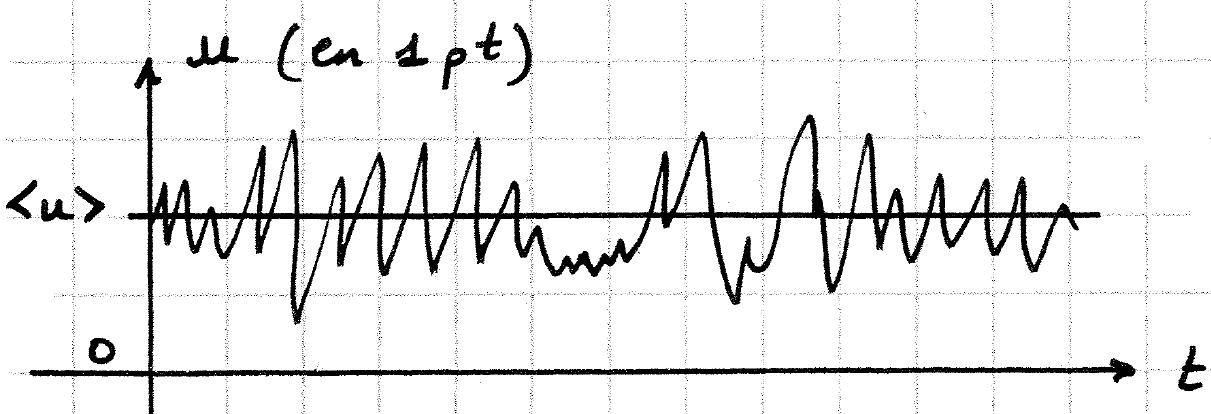 u (en 1 pt)
<u>
0
t